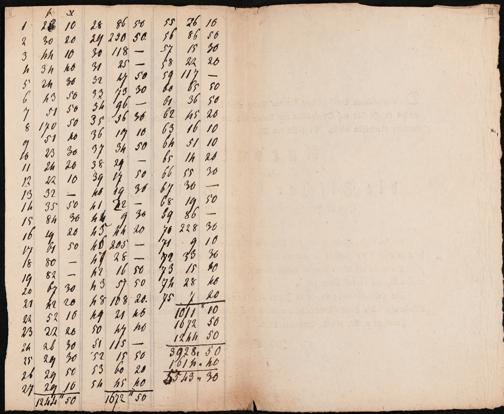 1 10
2 30 20
3 44 10
4 34 40
5 24 30
6 43 50
7 51 50
8 170 50
9 51 40
10 23 30
11 24 20
12 22 10
13 32 —
14 35 50
15 84 30
16 19 20
17 61 50
18 80 —
19 82 —
20 67 30
21 42 20
22 52 10
23 22 20
24 26 30
25 29 30
26 29 50
27 29 10
1244 50
28 86 50
29 230 50
30 118 —
31 25 —
32 47 50
33 73 30
34 96 —
35 36 30
36 19 10
37 34 50
38 29 —
39 17 50
40 19 30
41 22 —
9 30
44 20
205 —
28 —
16 50
57 50
48 168 20
49 21 40
50 47 40
51 115 —
52 15 50
53 60 20
54 45 40
1672 50
55 26 10
56 86 50
57 15 30
58 22 20
59 117 —
60 65 50
61 36 50
62 45 20
63 16 10
64 51 10
65 14 20
66 55 30
67 30 —
68 19 50
69 86 —
70 228 30
71 9 10
72 33 30
73 15
74 28 40
75 7 20
1011 10
1672 50
1244 50
3928 50
1614 40
5543 30